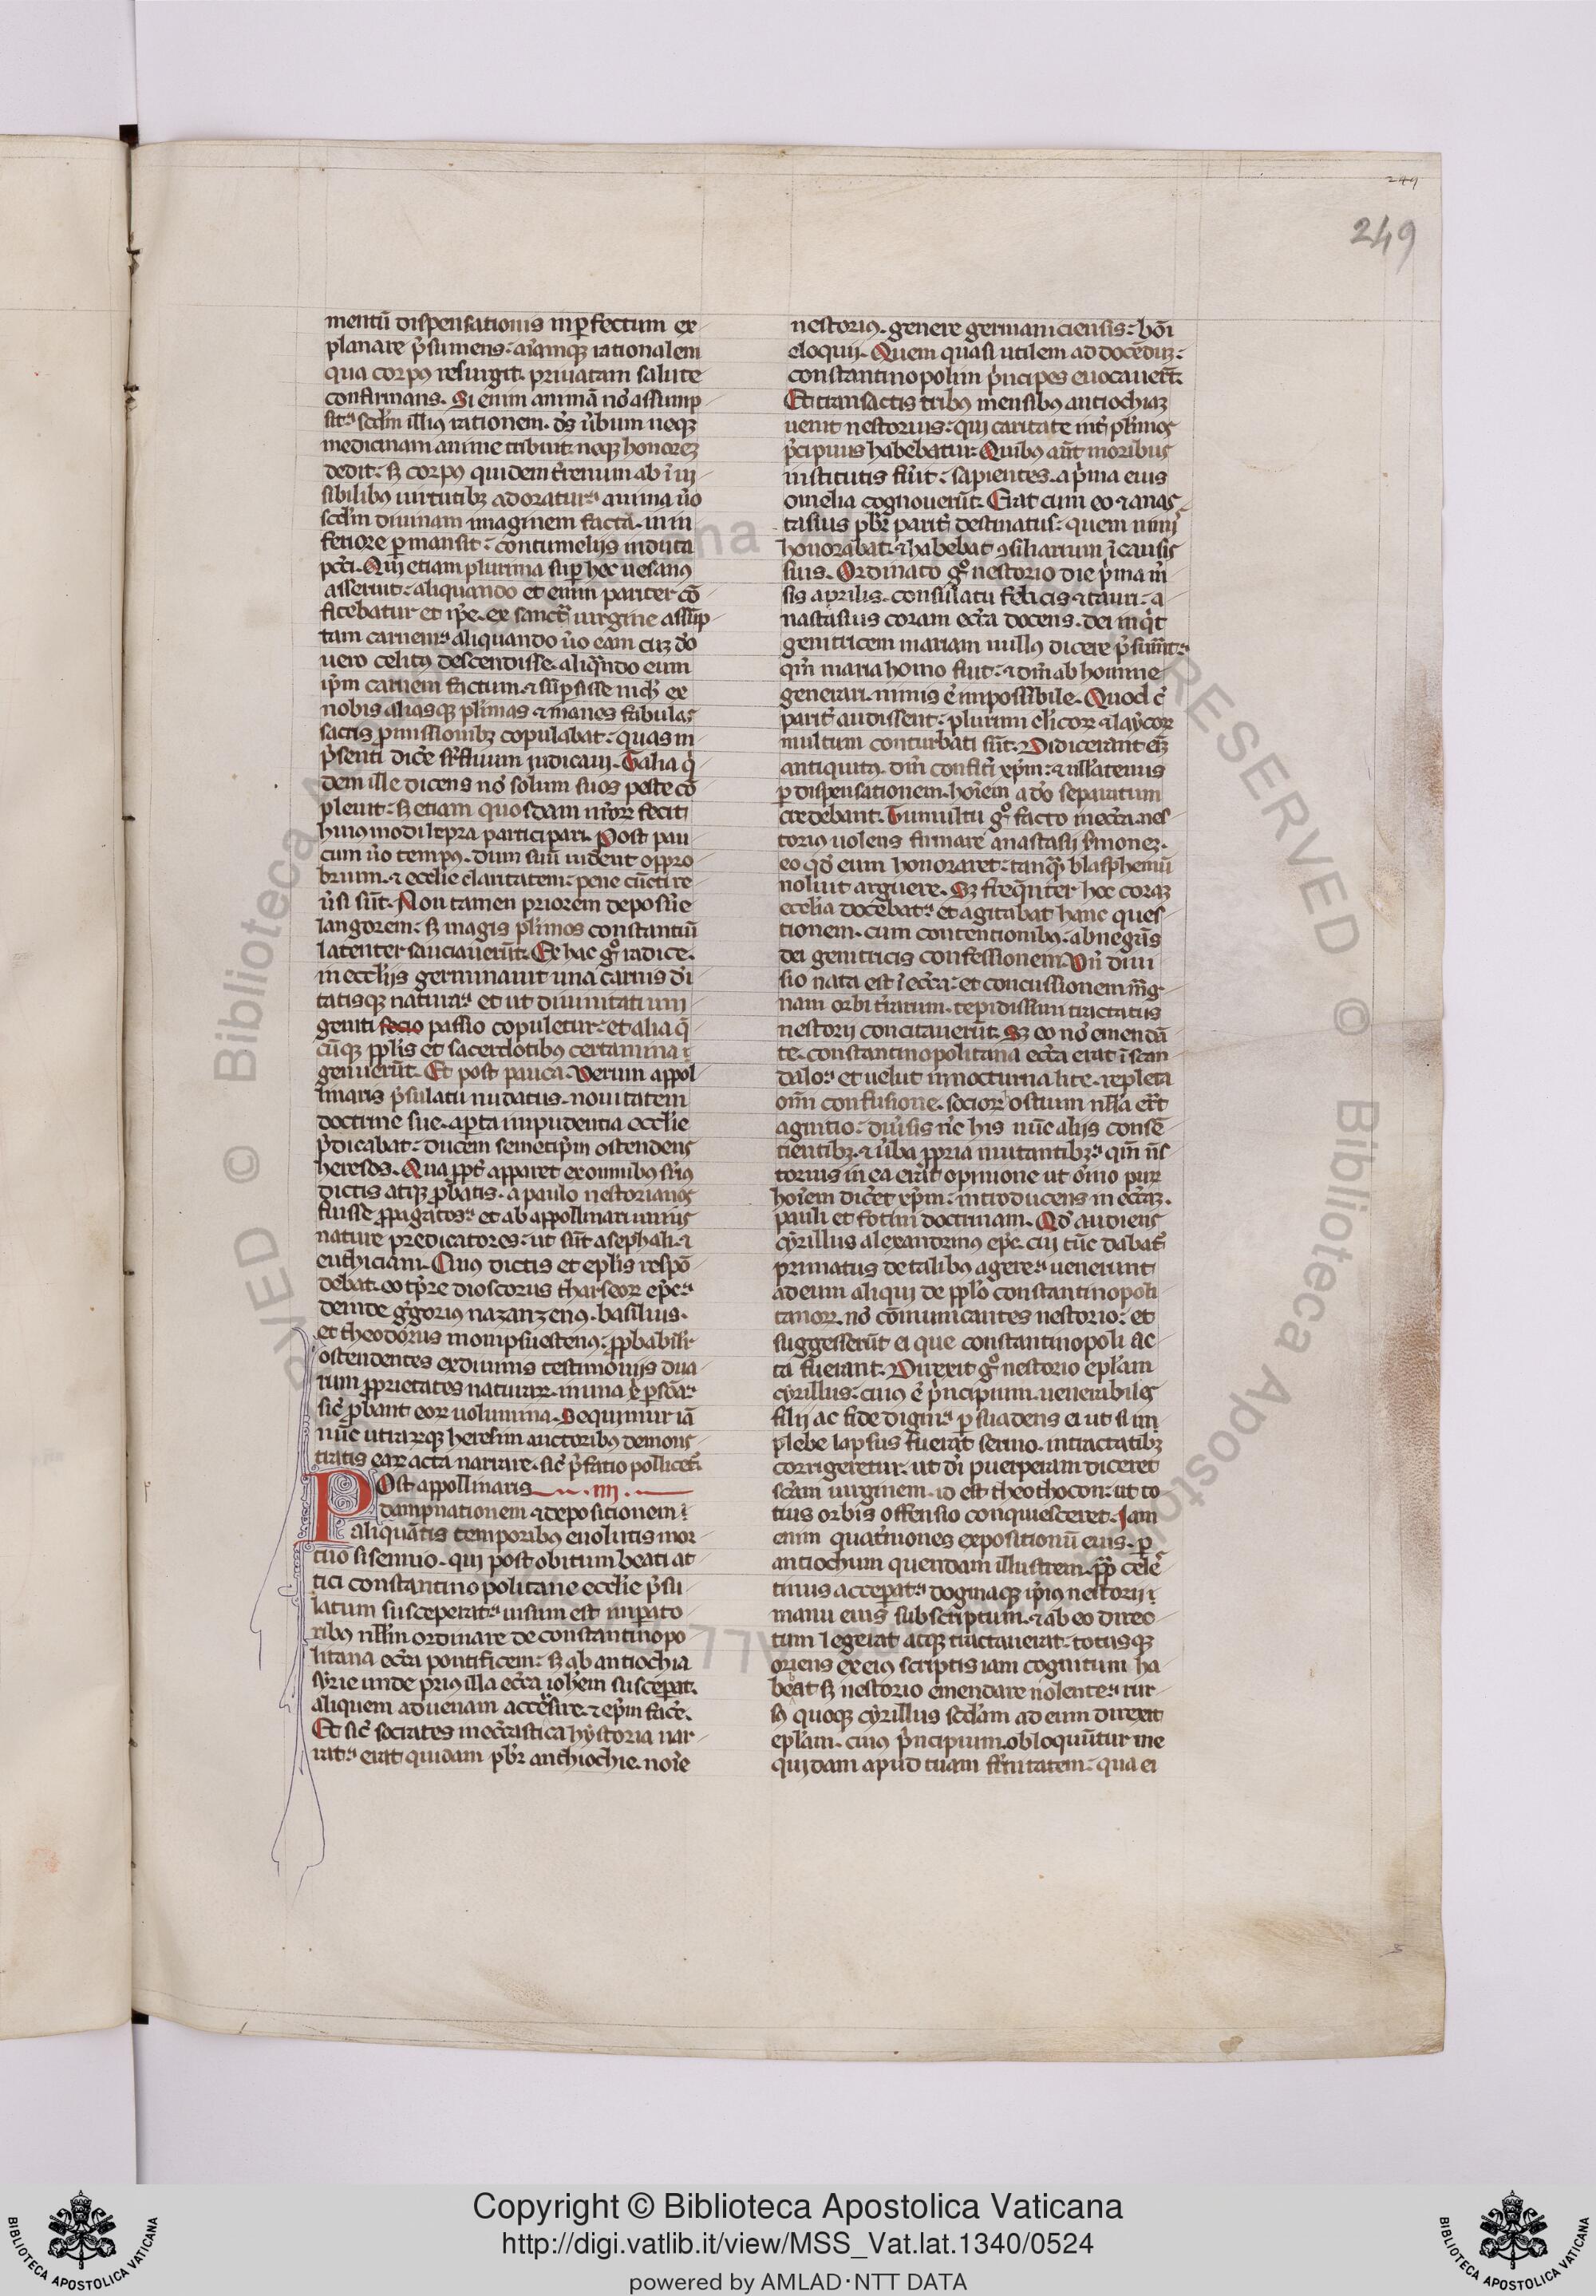 249
249
mentū dispensationis inperfectum ex
planare p̄sumens. aīamqꝫ rationalem
qua corpꝰ resurgit. priuatam salute
confirmans. Si enim animā nō assump
sit scd̄m illiꝰ rationem. dꝰs ūbum neqꝫ
medicinam anime tribuit. neqꝫ honoreꝫ
dedit. sꝫ corpꝰ quidem t̄renum ab īui
sibilibꝰ uirtutibꝫ adoratur. anima ūo
scd̄m diuinam imaginem facta. in in
feriore permansit. contumelijs induta
pctī. Qui etiam plurima sup hec uesanꝰ
asseruit. aliquando et enim pariter cō
fitebatur et ip̄e. ex sancta uirgine assūp
tam carnem. aliquando ūo eam cuꝫ dō
uero celitꝰ descendisse. aliquando eum
ip̄m carnem factum. ⁊ nichꝭ ex
nobis aliasqꝫ pl̄imas ⁊ inanes fabulas
sacris promissionibꝫ copulabat. quas in
p̄senti dicē sr̄fluum iudicaui. Talia qi
dem ille dicens nō solum suos peste cō
pleuit. sꝫ etiam quosdam nr̄oꝝ fecit
huiusmodi lepra participari. Post pau
cum ūo tempꝰ. dum suū uiderent oppro
brium. ⁊ ecclīe claritatem. pene cūcti re
ūsi sūt. Non tamen priorem deposūe
langorem. sꝫ magis pl̄imos constantiū
latenter sauciauerūt. Ex hac gͦ radice.
in ecclīis germinauit una carnis dei
tatisqꝫ natura. et ut diuinitati uni
geniti passio copuletur. et alia q̄
cūqꝫ ppl̄is et sacerdotibꝰ certamina ī
genuerūt. Et post pauca. Verum appol
linaris p̄sulatu nudatus. nouitatem
doctrine sue. apta inpudentia ecclīe
p̄dicabat. ducem semetip̄m ostendens
hereseos. Qua ppt̄ apparet ex omnibꝰ
dictis atqꝫ probatis. a paulo nestorianos
fuisse propagatos. et ab appollinari unius
nature predicatores. ut sūt asephali. ⁊
euthiciani. Cuiꝰ dictis et epl̄is respō
debat. eo tp̄re dioscorus tharseoꝝ epc̄.
deinde gͥgorius nazanzenꝰ. basilius.
et theodorus mompsuestenꝰ. probabilit̄
ostendentes ex diuinis testimonijs dua
rum proprietates naturaꝝ. in una psōa.
sic̄ probant eoꝝ uolumina. Sequimur iā
nūc utrarqꝫ heresim auctoribꝰ demons
tratis eaꝝ acta narrare. sic̄ p̄fatio pollicet̄.
Post appollinaris .iiii.
dampnationem ⁊ depositionem ī
aliquātis temporibus euolutis mor
tuo sisennio. qui post obitum beati at
tici constantinopolitane ecclīe p̄su
latum susceperat. uisum est imperato
ribꝰ nll̄m ordinare de constantinopo
litana ecc̄a pontificem. sꝫ ab antiochia
syrie unde priꝰ illa ecc̄a ioh̄em susceperat.
aliquem aduenam accersire. ⁊ ep̄m facē.
Et sic̄ socrates in ecc̄astica hystoria nar
rat. erat quidam pbr̄ anthiochie. noīe
nestoriꝰ. genere germaniciensis. boni
eloquij. Quem quasi utilem ad docēduꝫ.
constantinopolim p̄ncipes euocauert̄.
Et transactis tribꝰ mensibꝰ antiochiaꝫ
uenit nestorius. qui caritate int̄ pl̄imos
p̄cipuus habebatur. Quibꝰ aūt moribus
institutis fūit. sapientes. a p̄ma eius
omelia cognouerūt. Erat cum eo ⁊ anas
tasius pbr̄ parit̄ destinatus. quem nimi
honorabat. ⁊ habebat ꝯsiliarium ī causis
suis. Ordinato gͦ nestorio die p̄ma m̄
sis aprilis. consulatu felicis ⁊ tauri. a
nastasius coram ecc̄a docens. dei inqͥt
genitricem mariam nullꝰ dicere p̄sumat.
qm̄ maria homo fuit. ⁊ dm̄ ab homine
generari. nimis ē impossibile. Quod cū
parit̄ audissent. plurimi cl̄icoꝝ ⁊ laycoꝝ
multum conturbati sūt. Didicerant eī
antiquitꝰ. dm̄ confiteri xp̄m. ⁊ nll̄atenus
per dispensationem. hoīem a dō separatum
credebant. Tumultu gͦ facto in ecc̄a. nes
torius uolens firmare anastasij s̄moneꝫ.
eo qd̄ eum honoraret. tanqͣ blasphemū
noluit arguere. Sꝫ freqūter hoc coraꝫ
ecclīa docebat. et agitabat hanc ques
tionem. cum contentionibꝰ. abnegās
dei genitricis confessionem. Vn̄ diui
sio nata est ī ecc̄a. et concussionem mag
nam orbi t̄rarum. tepidissimi tractatus
nestorij concitauerūt. Sꝫ eo nō emendā
te. constantinopolitana ecc̄a erat ī scan
dalo. et uelut in nocturna lite. repleta
om̄i confusione. socioꝝ ostium nll̄a erat
agnitio. diūsis nc̄ his nūc alijs consē
tientibꝫ. ⁊ ūba ppria mutantibꝫ. qm̄ nes
torius in ea erat opinione ut oīno puꝝ
hoīem dic̄et xp̄m. introducens in ecc̄aꝫ.
pauli et fotini doctrinam. Qd̄ audiens
cyrillus alexandrinꝰ epc̄. cui tūc dabat̄
primatus de talibus agere. uenerunt
ad eum aliqui de ppl̄o constantinopoli
tanoꝝ. nō cōmunicantes nestorio. et
suggesserūt ei que constantinopoli ac
ta fuerant. Direxit gͦ nestorio epl̄am
cyrillus. cuiꝰ ē p̄ncipium. uenerabiles
filij ac fide digni. persuadens ei ut si in
plebe lapsus fuerat sermo. in tractatibꝫ
corrigeretur. ut dī puerperam diceret
scām uirginem. id est theothocon. ut to
tius orbis offensio conquiesceret. Iam
enim quat̄niones expositionū eiꝰ. per
antiochum quendam illustrem. pp̄ celes
tinus acceperat. dogmaqꝫ ip̄ius nestorij
manu eius subscriptum. ⁊ ab eo direc
tum legerat atqꝫ tractauerat. totusqꝫ
oriens ex eiꝰ scriptis iam cognitum ha
bebat. sꝫ nestorio emendare nolente. rur
sꝰ quoqꝫ cyrillus scd̄am ad eum direxit
epl̄am. cuiꝰ p̄ncipium. obloquūtur me
quidam apud tuam fr̄nitatem. qua ei
© Biblioteca Apostolica Vaticana
ALL RIGHTS RESERVED
Copyright © Biblioteca Apostolica Vaticana
http://digi.vatlib.it/view/MSS_Vat.lat.1340/0524
powered by AMLAD·NTT DATA
BIBLIOTECA APOSTOLICA VATICANA
BIBLIOTECA APOSTOLICA VATICANA